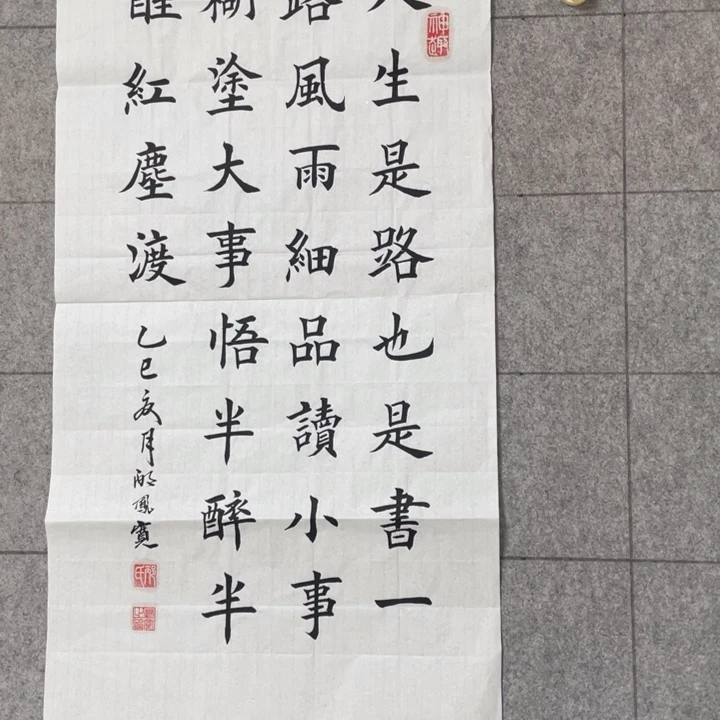 人生是路也是書一
路風雨細品讀小事
糊塗大事悟半醉半
醒紅塵渡
乙巳夏月 鳳寶